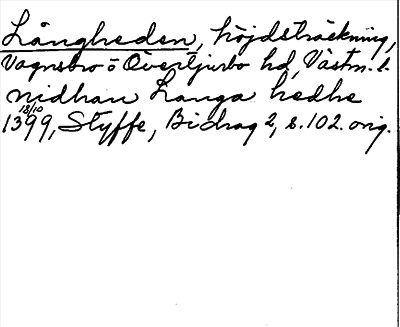 Långheden, höjdsträckning,
Vagnsbro o Övertjurbo hd, Västm. l.
nidhan Langa hedhe
18/10
1399, Styffe, Bidrag 2, s. 102. orig.